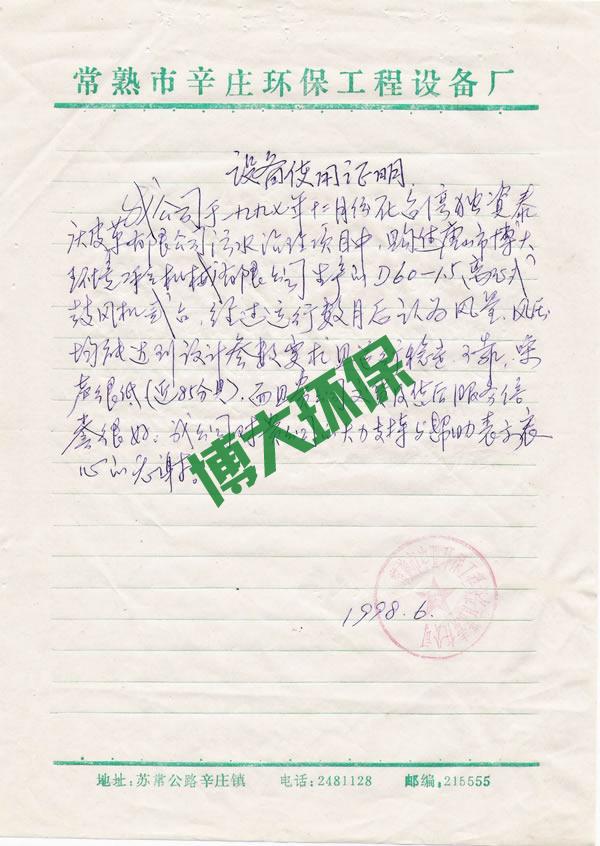 常熟市辛庄环保工程设备厂
设备使用证明
我公司于一九九七年十二月份在台湾独资泰
庆皮革有限公司污水治理项目中，购进唐山市博大
环境工程机械有限公司生产的D60-1.5离心式
鼓风机 台，经过运行数月后认为风量、风压
均能达到设计参数要求且运行稳定 可靠，噪
声很低（近85分贝），而且贵公司 售后服务信
誉很好。我公司对贵公司 大力支持与帮助表示衷
心的感谢。
博大环保
1998.6.
地址：苏常公路辛庄镇 电话：2481128 邮编：215555